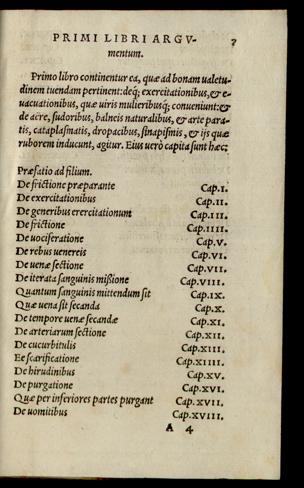 PRIMI LIBRI ARGV-
mentum.
7
Primo libro continentur ea, quæ ad bonam ualetu-
dinem tuendam pertinent: deq; exercitationibus, & e-
uacuationibus, quæ uiris mulieribusq; conueniunt: &
de aere, sudoribus, balneis naturalibus, & arte para-
tis, cataplasmatis, dropacibus, sinapismis, & ijs quæ
ruborem inducunt, agitur. Eius uerò capita sunt hæc:
Præfatio ad filium.
De frictione præparante Cap.I.
De exercitationibus Cap.II.
De generibus erercitationum Cap.III.
De frictione Cap.IIII.
De uociferatione Cap.V.
De rebus uenereis Cap.VI.
De uenæ sectione Cap.VII.
De iterata sanguinis mißione Cap.VIII.
Quantum sanguinis mittendum sit Cap.IX.
Quæ uena sit secanda Cap.X.
De tempore uenæ secandæ Cap.XI.
De arteriarum sectione Cap.XII.
De cucurbitulis Cap.XIII.
Ee scarificatione Cap.XIIII.
De hirudinibus Cap.XV.
De purgatione Cap.XVI.
Quæ per inferiores partes purgant Cap.XVII.
De uomitibus Cap.XVIII.
A 4